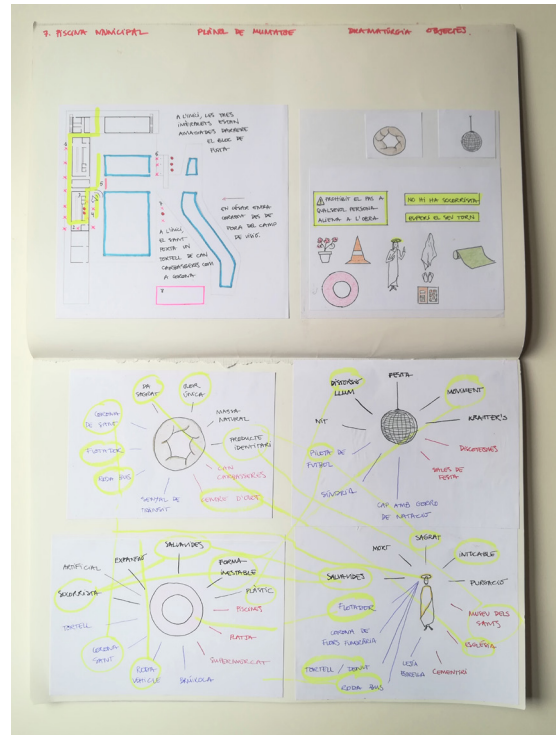 7. PISCINA MUNICIPAL
PLÀNOL DE MUNTATGE
DRAMATÚRGIA OBJECTES.
A L'INICI, LES TRES
INTÈRPRETS ESTAN
AMAGADES DARRERE
EL BLOC DE
FUSTA
EN CÉSAR ENTRA
CORRENT DES DE
FORA DEL CAMP
DE VISIÓ.
A L'INICI,
EL SANT
PORTA UN
TORTELL DE CAN
CARGASSERES COM
A CORONA
PROHIBIT EL PAS A
QUALSEVOL PERSONA
ALIENA A L'OBRA
NO HI HA SOCORRISTA
ESPERI EL SEU TORN
PA
SAGRAT
COR
ÚNICA
CORONA
DE SANT
MASSA
NATURAL
FLOTADOR
PRODUCTE
IDENTITARI
RODA BUS
CAN
CARGASSERES
SENYAL DE
TRÀNSIT
CENTRE D'OLOT
FESTA
DISTORSIÓ
LLUM
MOVIMENT
NIT
PILOTA DE
FUTBOL
DISCOTEQUES
SALES DE
FESTA
SÍNDRIA
CAP AMB GORRE
DE NATACIÓ
SALVAVIDES
EXPANSIÓ
FORMA
INESTABLE
ARTIFICIAL
SOCORRISTA
PLÀSTIC
PISCINES
TORTELL
PLATJA
CORONA
SANT
SUPERMERCAT
RODA
VEHICLE
SAGRAT
MORT
INTOCABLE
SALVAVIDES
PURITACIÓ
FLOTADOR
MUSEU DELS
SANTS
CORONA DE
FLORS FUNERÀRIA
ESGLÉSIA
TORTELL / DONUT
CEMENTIRI
RODA BUS